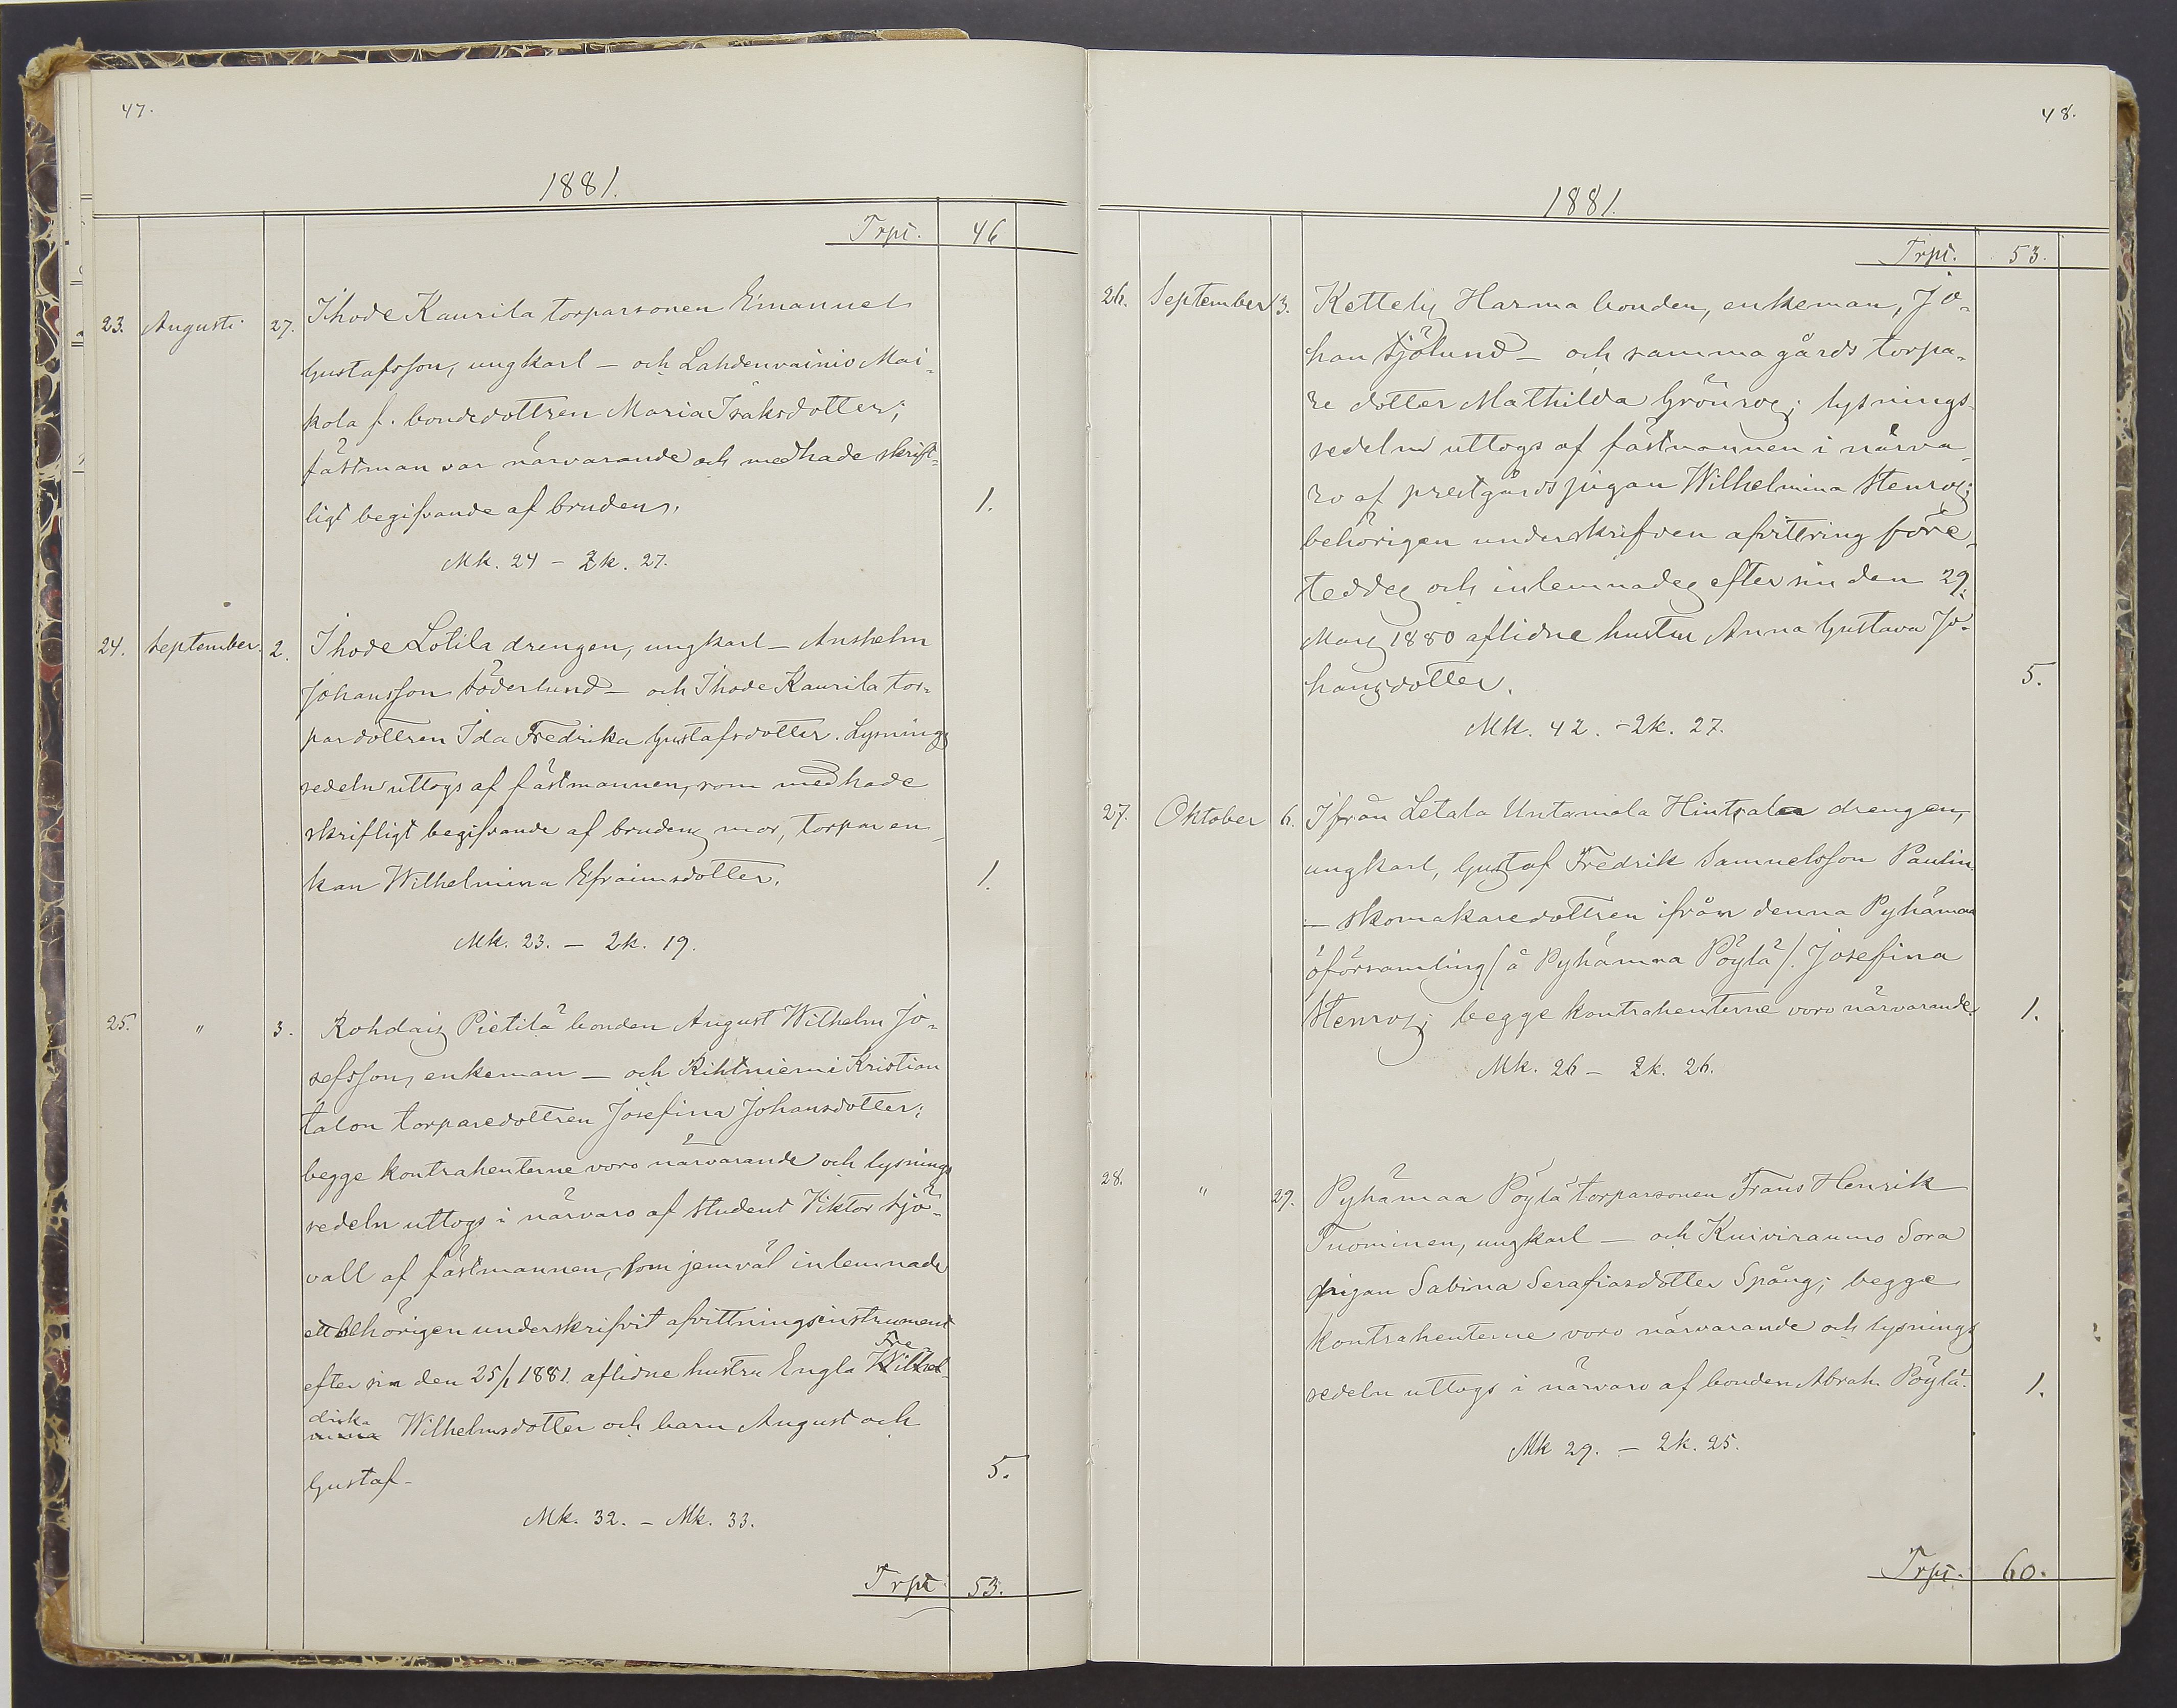 47.
1881.
Trpt. 46
23. Augusti 27. Ihode Kaurila torparsonen Emanuel
Gustafsson, ungkarl – och Lahdenvainio Mai-
kola f. bondedottren Maria Isaksdotter;
fästman var närvarande och medhade skrift-
ligt begifvande af bruden. 1.
Mk. 24 – 2k. 27.
24. September. 2. Ihode Lotila drengen, ungkarl – Anshelm
Johansson Söderlund – och Ihode Kaurila tor-
pardottren Ida Fredrika Gustafsdotter. Lysnings
sedeln uttogs af fästmannen, som medhade
skrifligt begifvande af brudens mor, torparen-
kan Wilhelmina Efraimsdotter. 1.
Mk. 23. – 2k. 19.
25. " 3. Rohdais Pietilä bonden August Wilhelm Jo-
sefsson, enkeman – och Rihtniemi Kristian
talon torparedottren Josefina Johansdotter;
begge kontrahenterne voro närvarande och lysnings
sedeln uttogs i närvaro af student Viktor Sjö-
vall af fästmannen, som jemväl inlemnade
ett behörigen underskrifvit afvittringsinstrument
efter sin den 25/1 1881. aflidne hustru Engla Wilhel- Fre-
mina drika Wilhelmsdotter och barn August och
Gustaf – 5.
Mk. 32. – Mk. 33.
Trpt 53.
48.
1881.
Trpt. 53.
26. September 13. Kettely Harma bonden, enkeman, Jo-
han Sjölund – och samma gårds torpa-
re dotter Mathilda Grönros; lysnings-
sedeln uttogs af fästmannen i närva-
ro af prestgårdspigan Wilhelmina Stenros;
behörigen underskrifven afvittring före-
teddes och inlemnades efter sin den 29.
Mars 1880 aflidne hustru Anna Gustava Jo-
hansdotter. 5.
Mk. 42. – 2k. 27.
27. Oktober 6. Ifrån Letala Untamala Hintsala drengen,
ungkarl, Gustaf Fredrik Samuelsson Paulin
– skomakaredottren ifrån denna Pyhämaa
öförsamling (å Pyhämaa Pöylä). Josefina
Stenros; begge kontrahenterne voro närvarande. 1.
Mk. 26 – 2k. 26.
28. " 29. Pyhämaa Pöylä torparsonen Frans Henrik
Tuominen, ungkarl – och Kuiviraumo Sora
pigan Sabina Serafiasdotter Spång; begge
kontrahenterne voro närvarande och lysnings
sedeln uttogs i närvaro af bonden Abrah. Pöylä. 1.
Mk 29. – 2k. 25.
Trpt. 60.